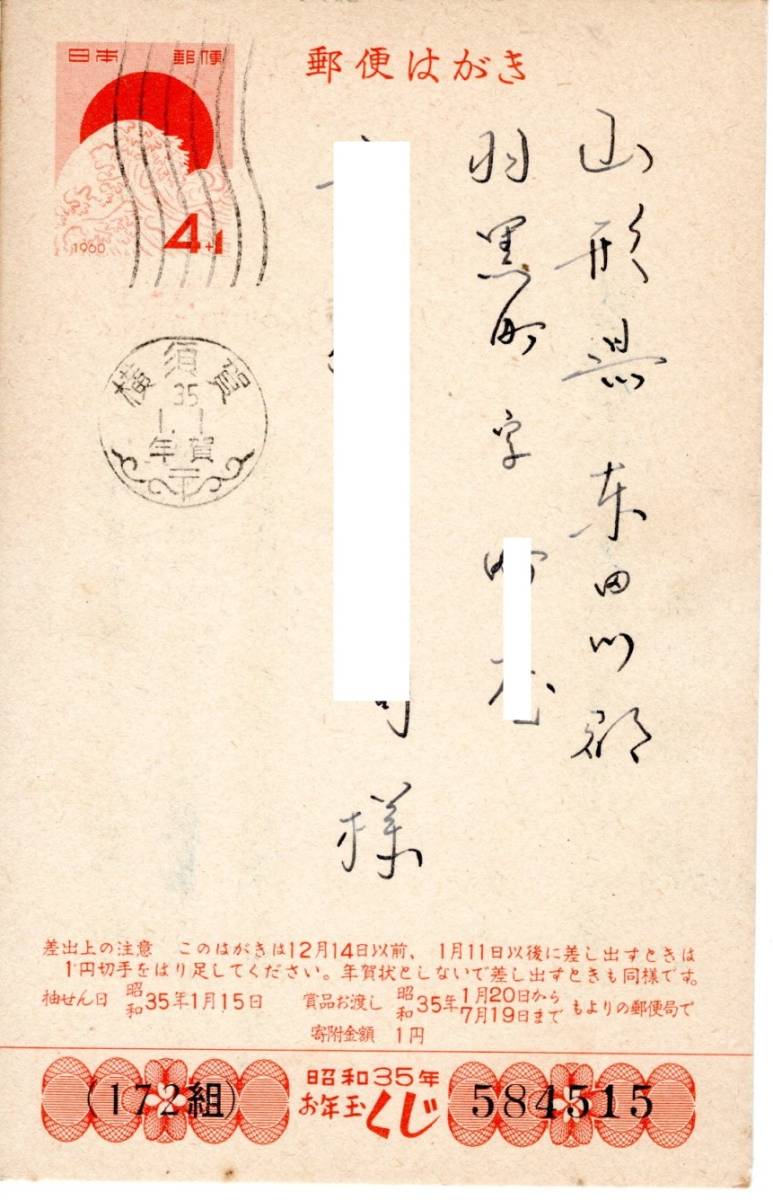 日本郵便
1960
4+1
郵便はがき
横須賀
35
1.1
年賀
山形県東田川郡
羽黒町字
様
差出上の注意 このはがきは12月14日以前、1月11日以後に差し出すときは
1円切手をはり足してください。年賀状としないで差し出すときも同様です。
抽せん日 昭和35年1月15日 賞品お渡し 昭和35年1月20日から7月19日まで もよりの郵便局で
寄附金額 1円
(172組)
昭和35年
お年玉くじ
584515